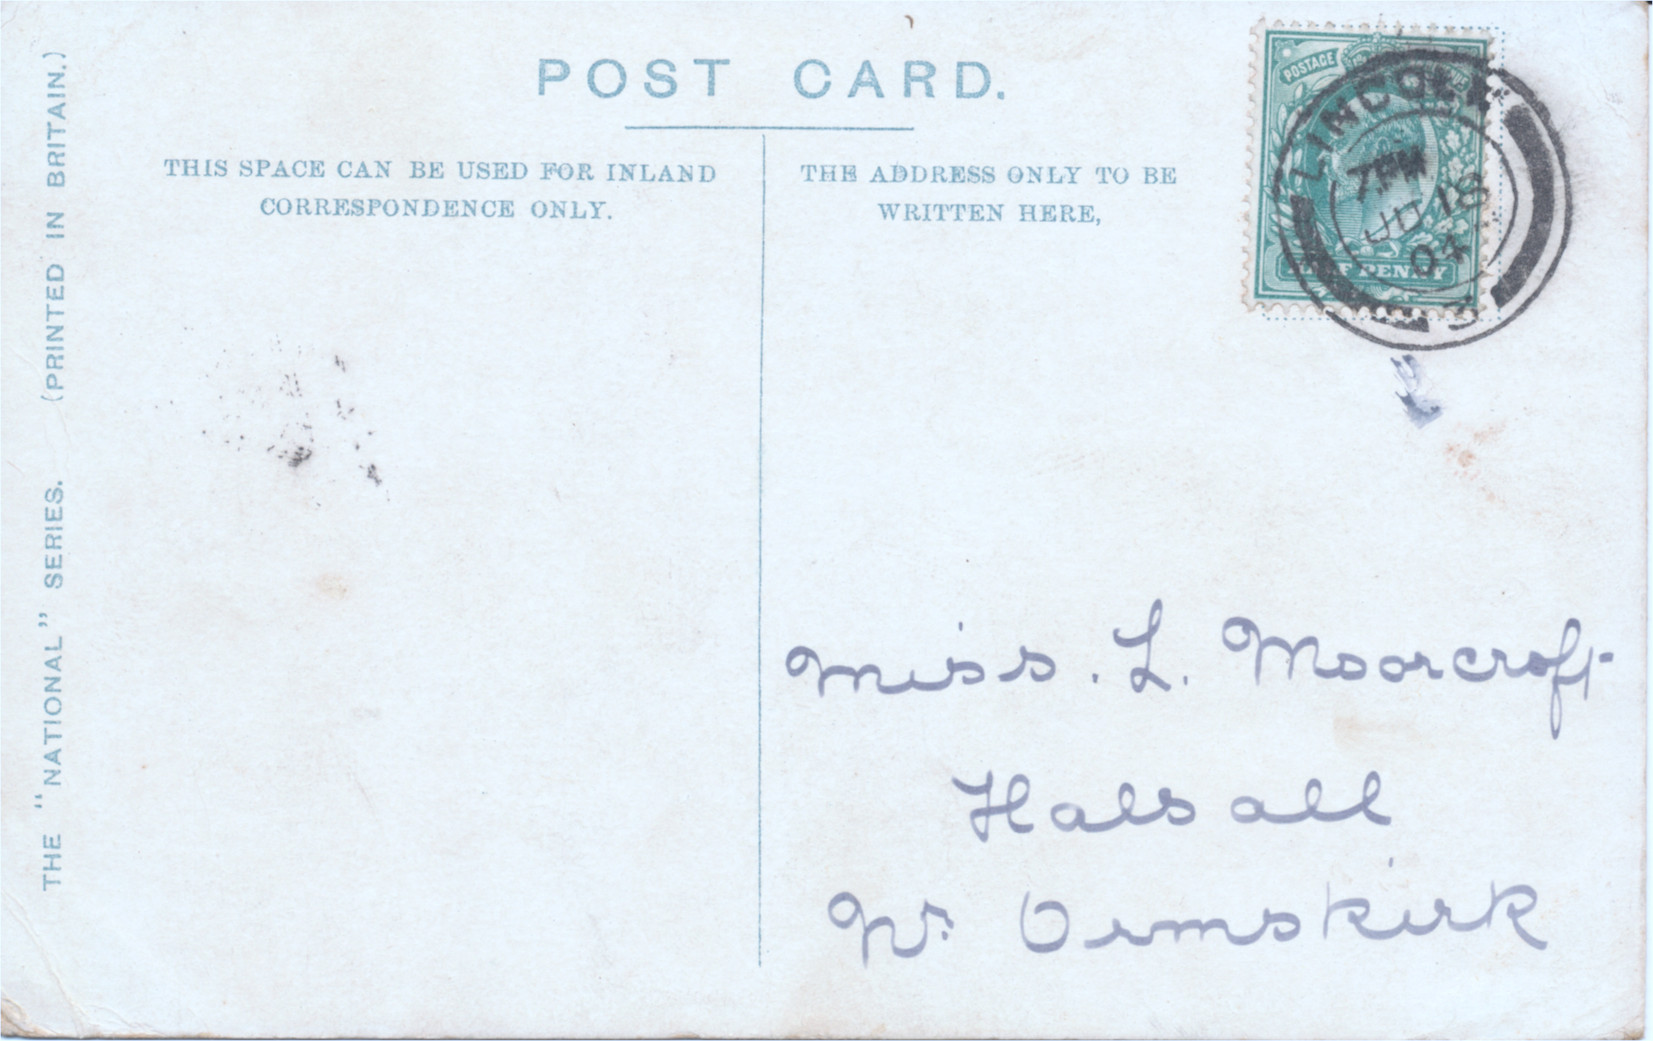 POST CARD.
THIS SPACE CAN BE USED FOR INLAND
CORRESPONDENCE ONLY.
THE ADDRESS ONLY TO BE
WRITTEN HERE,
THE "NATIONAL" SERIES. (PRINTED IN BRITAIN.)
POSTAGE
HALF PENNY
LINCOLN
7 PM
JU 18
04
Miss. L. Moorcroft
Halsall
Nr. Ormskirk